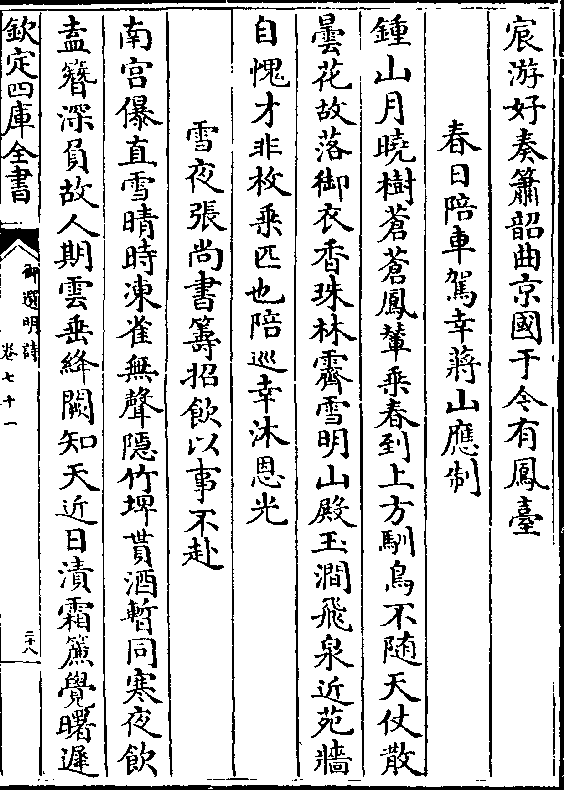 宸游好奏簫韶曲京國于今有鳳臺
春日陪車駕幸蔣山應制
鍾山月曉樹蒼蒼鳳輦乗春到上方馴鳥不随天仗散
曇花故落御衣香珠林霽雪明山殿玉澗飛泉近苑牆
自愧才非枚乗匹也陪巡幸沐恩光
雪夜張尚書籌招飲以事不赴
南宫儤直雪晴時凍雀無聲隠竹埤貰酒暫同寒夜飲
盍簪深負故人期雲垂絳闕知天近日漬霜簾覺曙遲
欽定四庫全書
御選明詩
卷七十一
二十八